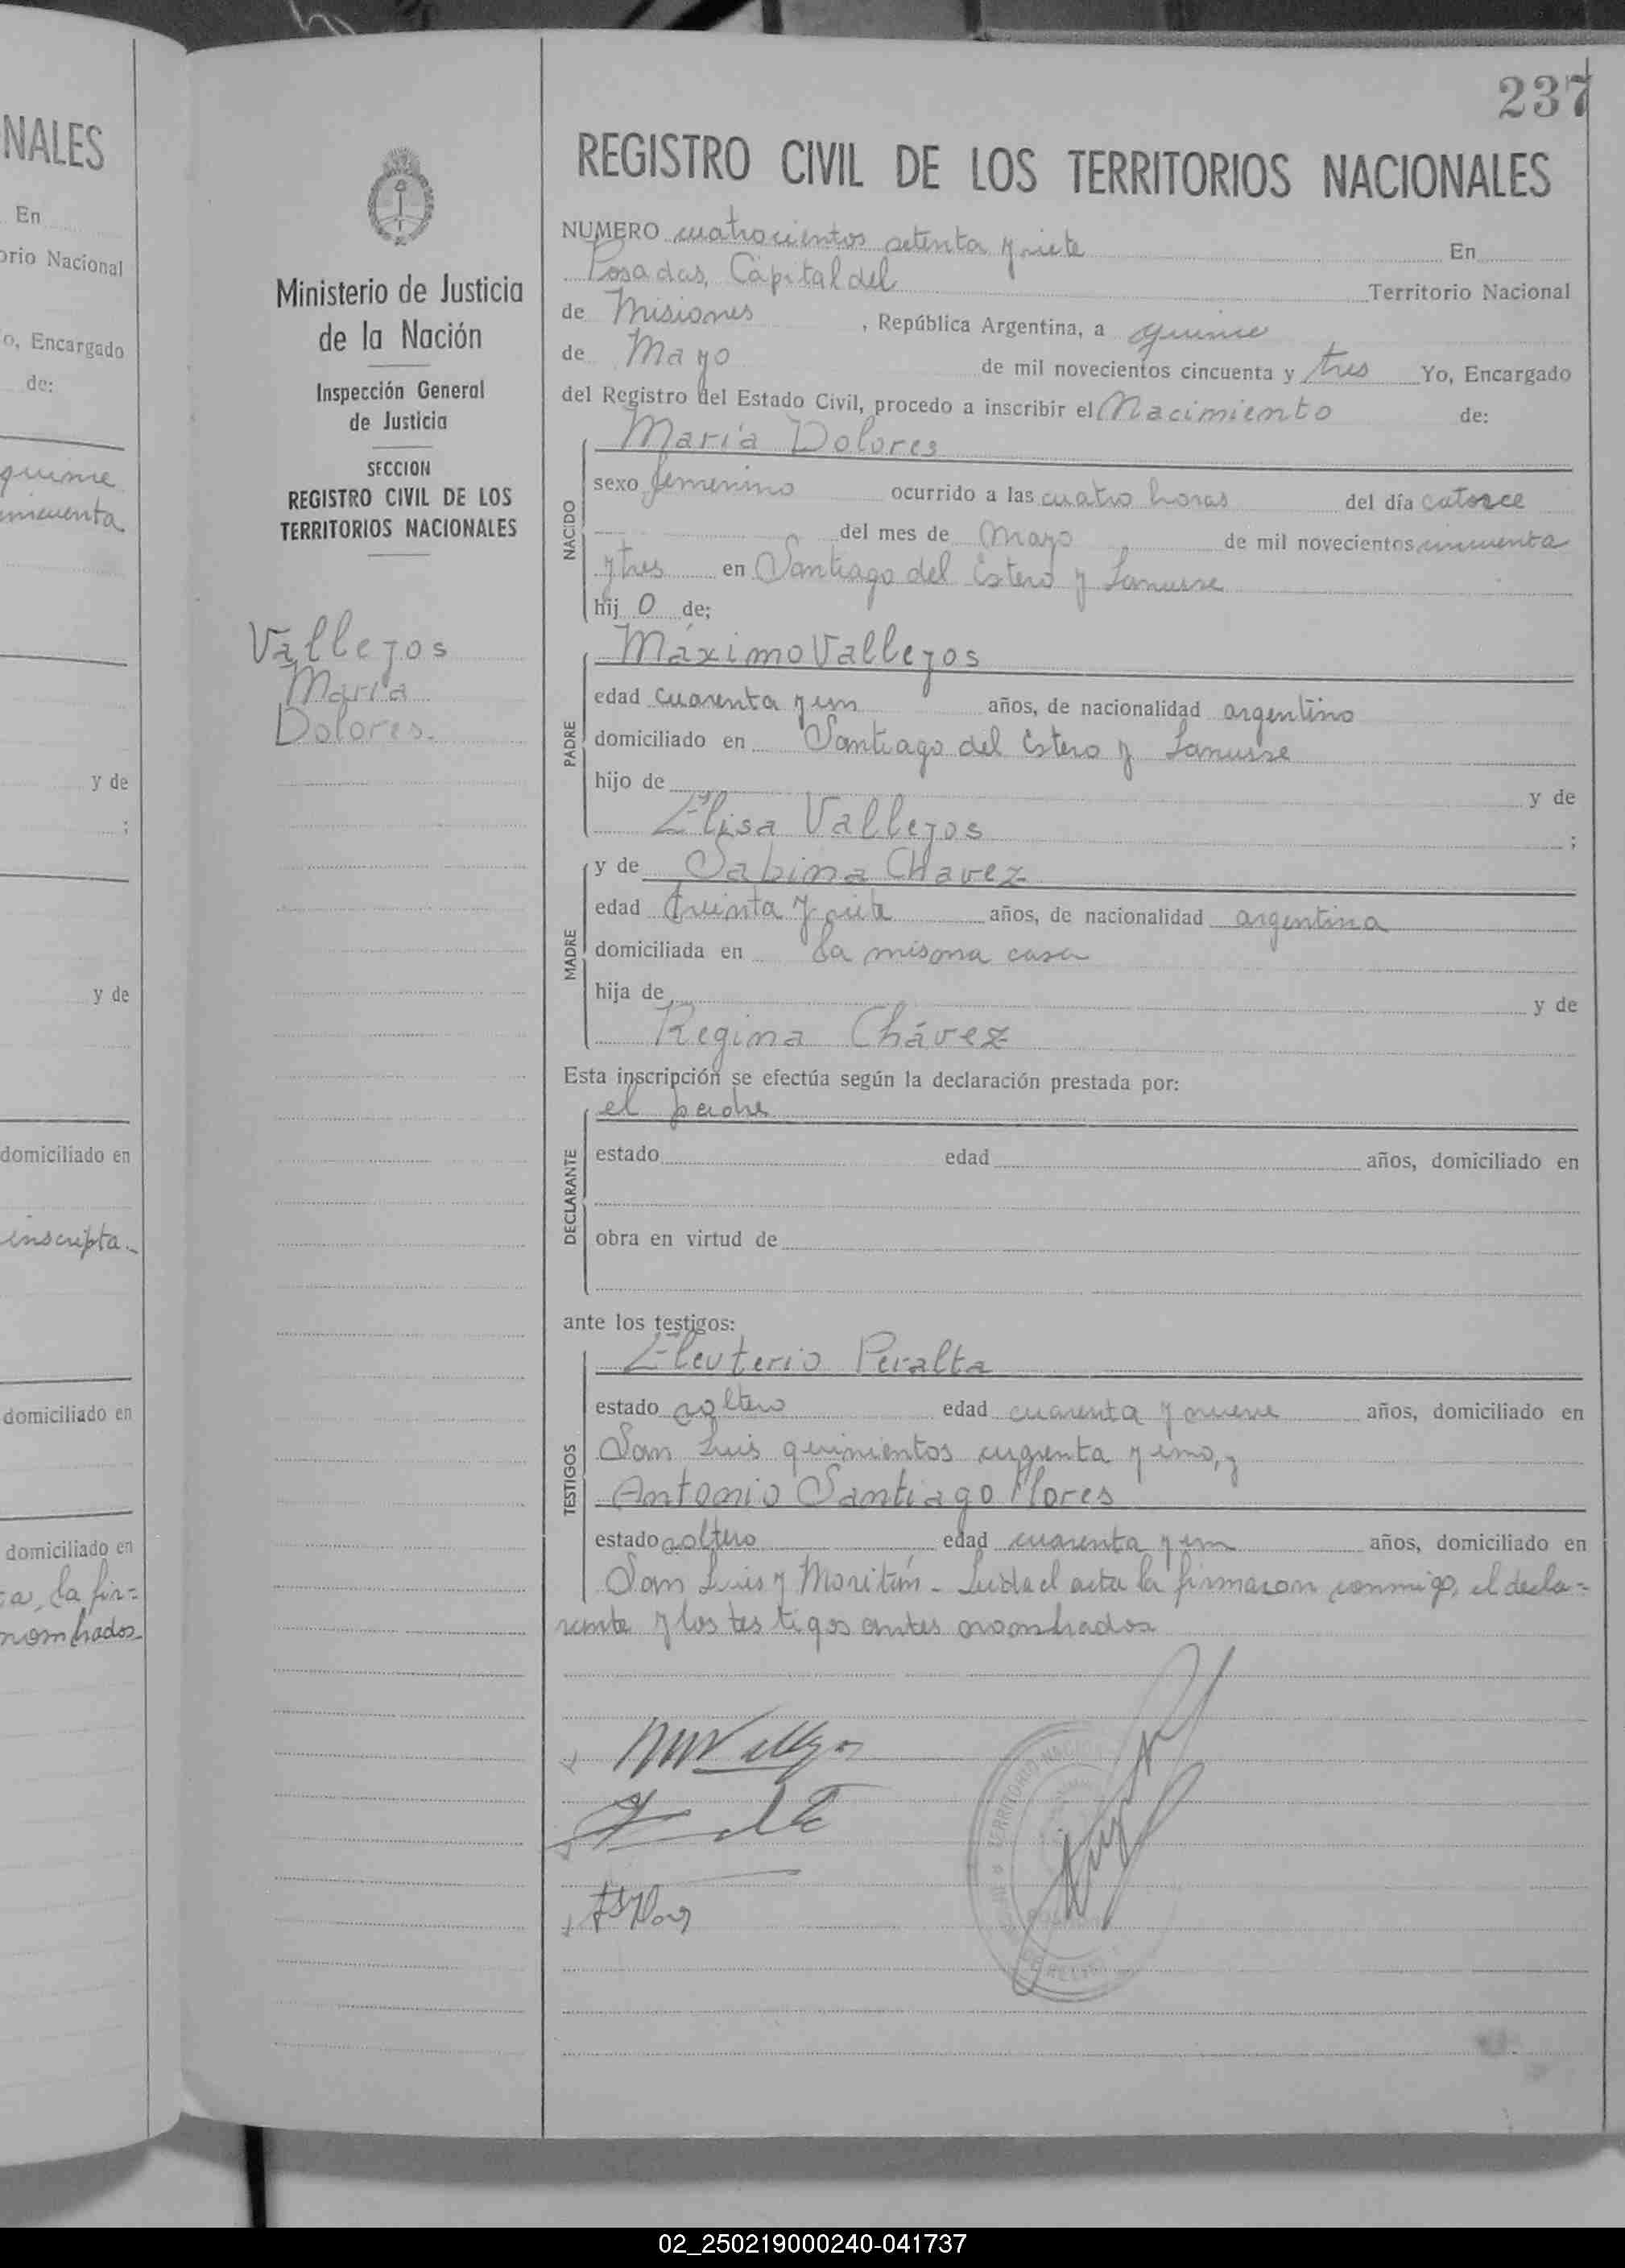 NALES
En
orio Nacional
o, Encargado
de:
quince
cincuenta
y de
;
y de
domiciliado en
inscripta.-
domiciliado en
domiciliado en
ta, la fir=
nombrados
Ministerio de Justicia
de la Nación
Inspección General
de Justicia
SECCION
REGISTRO CIVIL DE LOS
TERRITORIOS NACIONALES
Vallejos
María
Dolores.
237
REGISTRO CIVIL DE LOS TERRITORIOS NACIONALES
NUMERO cuatrocientos setenta y siete En
Posadas, Capital del Territorio Nacional
de Misiones, República Argentina, a quince
de Mayo de mil novecientos cincuenta y tres Yo, Encargado
del Registro del Estado Civil, procedo a inscribir el Nacimiento de:
María Dolores
NACIDO
sexo femenino ocurrido a las cuatro horas del día catorce
del mes de Mayo de mil novecientos cincuenta
y tres en Santiago del Estero y Lanusse
hij o de;
Máximo Vallejos
PADRE
edad cuarenta y un años, de nacionalidad argentino
domiciliado en Santiago del Estero y Lanusse
hijo de y de
Elisa Vallejos ;
y de Sabina Chavez
MADRE
edad treinta y siete años, de nacionalidad argentina
domiciliada en la misma casa
hija de y de
Regina Chávez
Esta inscripción se efectúa según la declaración prestada por:
el padre
DECLARANTE
estado edad años, domiciliado en
obra en virtud de
ante los testigos:
Eleuterio Peralta
TESTIGOS
estado soltero edad cuarenta y nueve años, domiciliado en
San Luis quinientos y uno, y
Antonio Santiago Flores
estado soltero edad cuarenta y un años, domiciliado en
San Luis y Moritán - Leida el acta la firmaron conmigo, el decla=
rante y los testigos antes nombrados
MVallejos
ASFlores
TERRITORIO NACIONAL
02_250219000240-041737